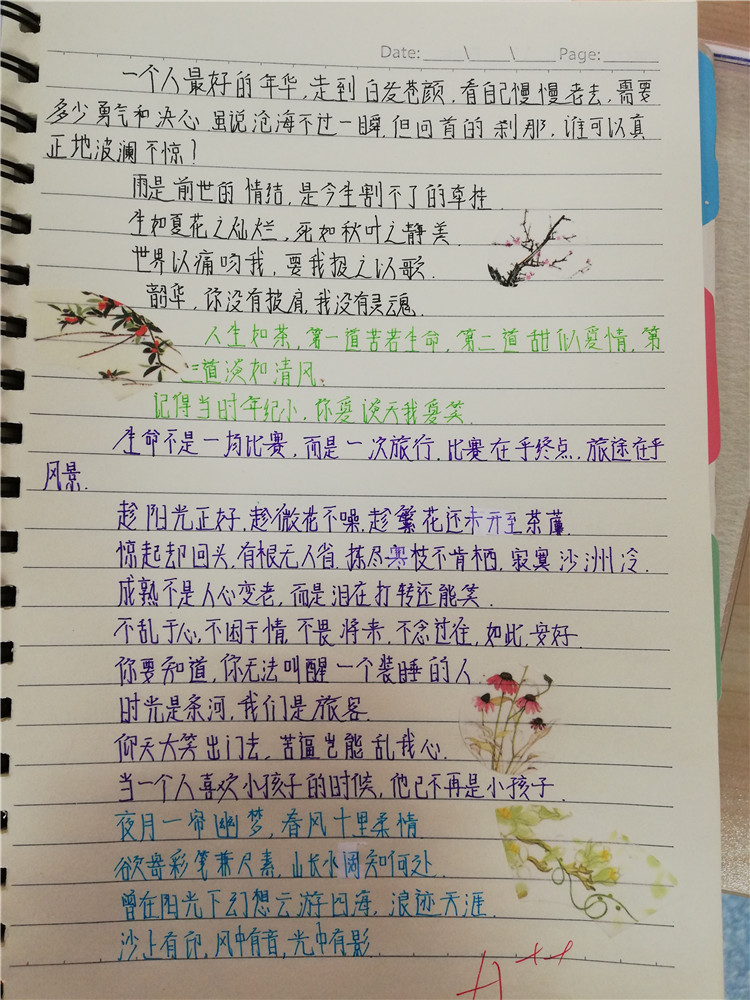 Date: _____\ _____\ _____ Page: _____
一个人最好的年华,走到白发苍颜,看自己慢慢老去,需要
多少勇气和决心.虽说沧海不过一瞬,但回首的刹那,谁可以真
正地波澜不惊!
雨是前世的情结,是今生割不了的牵挂.
生如夏花之灿烂,死如秋叶之静美.
世界以痛吻我,要我报之以歌.
韶华,你没有披肩,我没有灵魂.
人生如茶,第一道苦若生命,第二道甜似爱情,第
三道淡如清风。
记得当时年纪小,你爱谈天我爱笑.
生命不是一场比赛,而是一次旅行.比赛在乎终点,旅途在乎
风景.
趁阳光正好,趁微花不噪,趁繁花还未开至荼蘼.
惊起却回头,有根无人省.拣尽寒枝不肯栖,寂寞沙洲冷.
成熟不是人心变老,而是泪在打转还能笑.
不乱于心,不困于情.不畏将来,不念过往,如此,安好.
你要知道,你无法叫醒一个装睡的人.
时光是条河,我们是旅客.
仰天大笑出门去,苦逼岂能乱我心.
当一个人喜欢小孩子的时候,他已不再是小孩子.
夜月一帘幽梦,春风十里柔情.
欲寄彩笔兼尺素,山长水阔知何处.
曾在阳光下幻想云游四海,浪迹天涯.
沙上有印,风中有音,光中有影.
A++